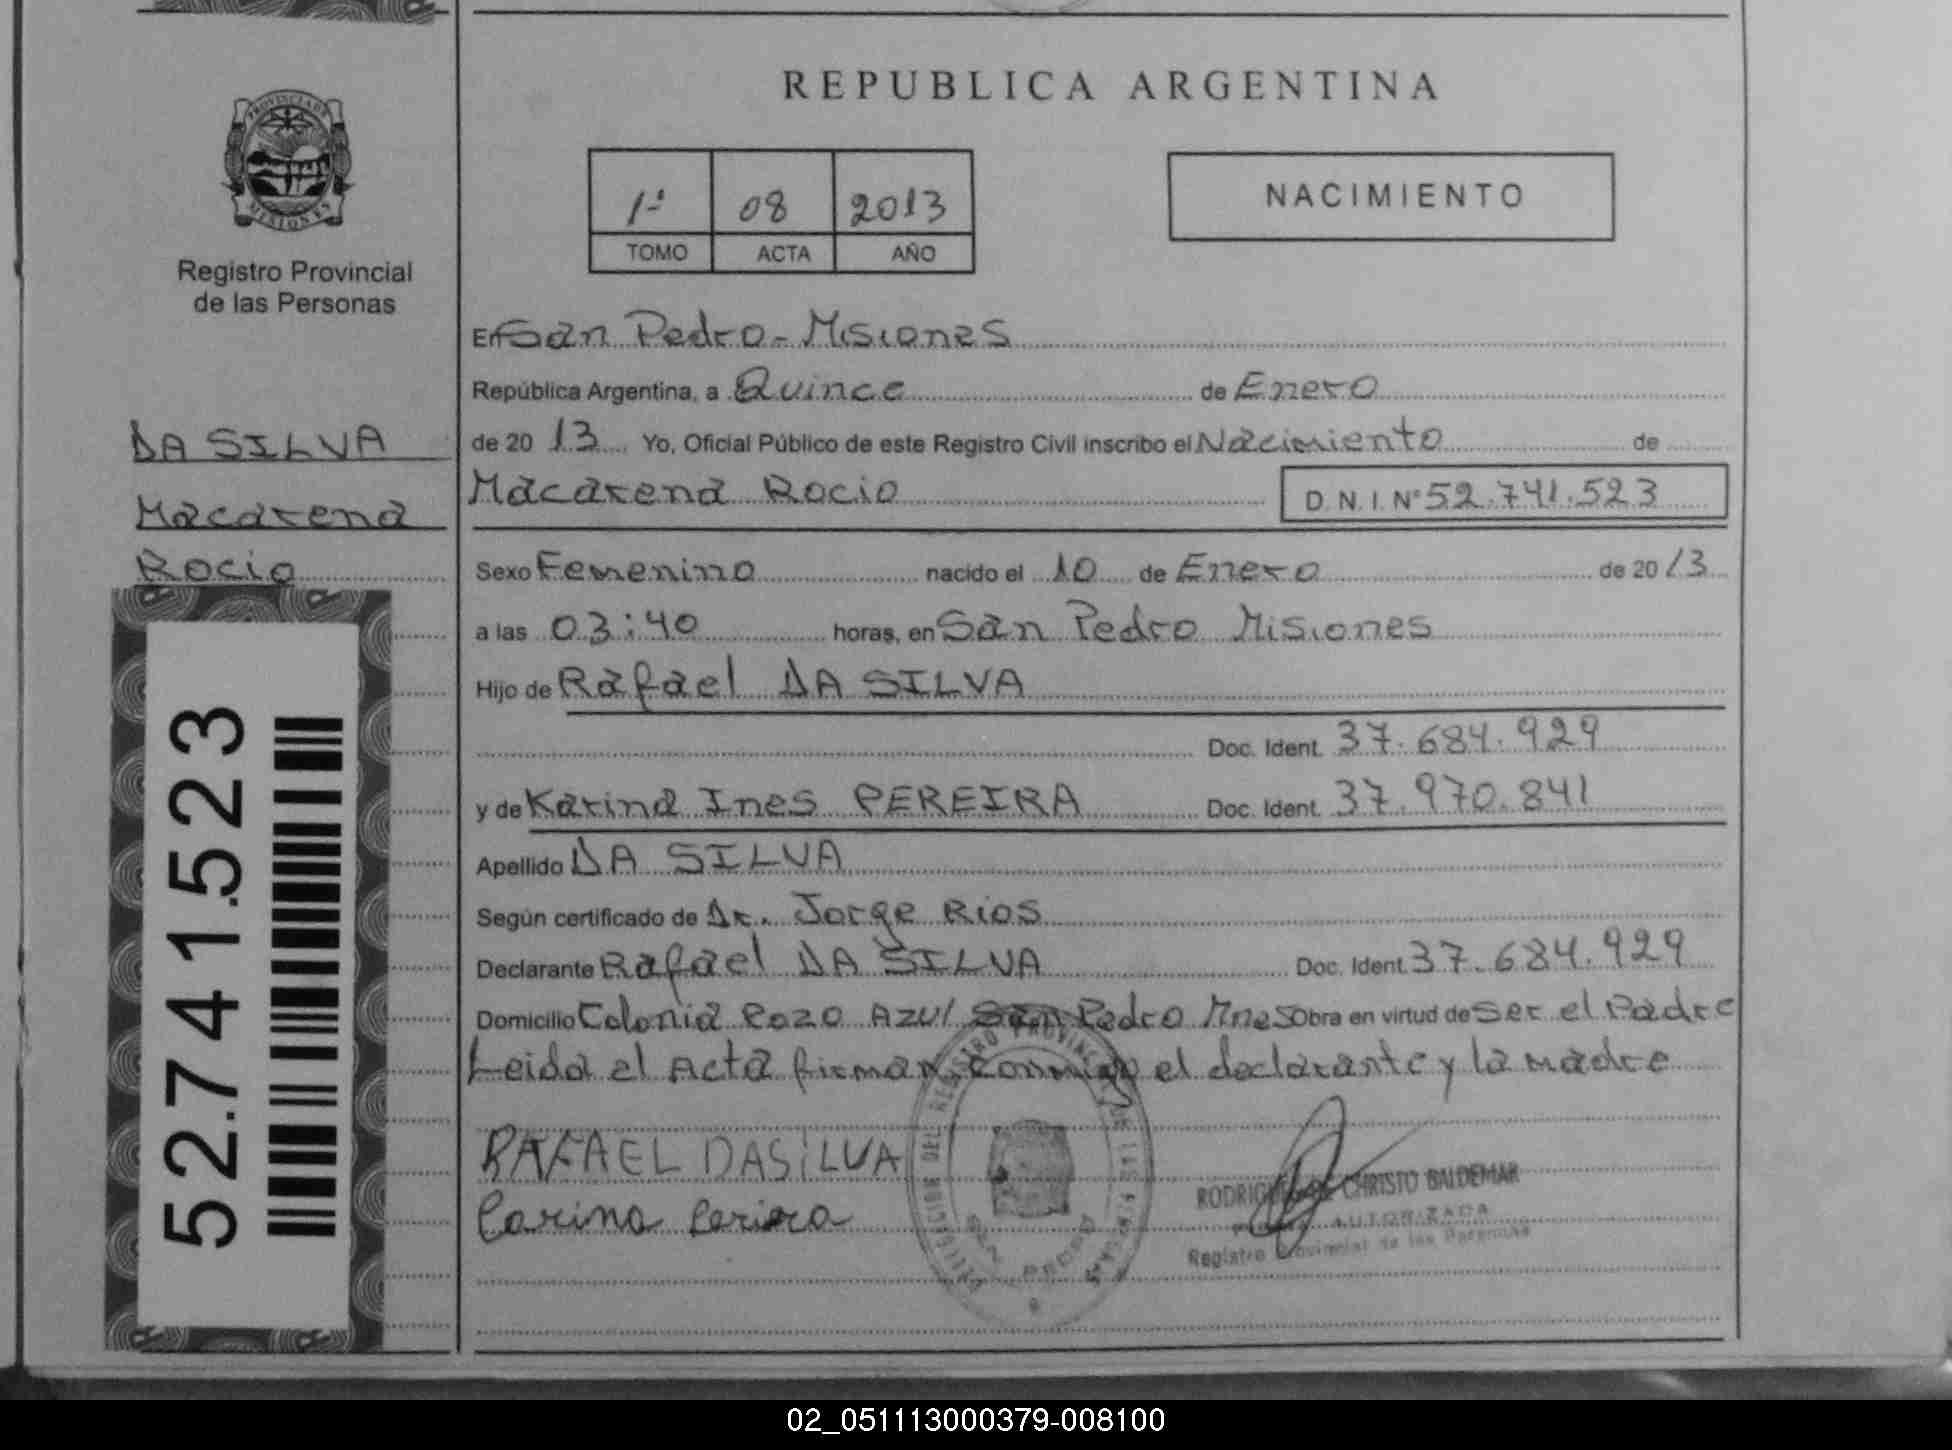 REPUBLICA ARGENTINA
PROVINCIA DE
MISIONES
Registro Provincial
de las Personas
1ª 08 2013
TOMO ACTA AÑO
NACIMIENTO
DA SILVA
Macarena
Rocio
52.741.523
En San Pedro - Misiones
República Argentina, a Quince de Enero
de 20 13 Yo, Oficial Público de este Registro Civil inscribo el Nacimiento de
Macarena Rocio D. N. I. N° 52.741.523
Sexo Femenino nacido el 10 de Enero de 20 13
a las 03:40 horas, en San Pedro Misiones
Hijo de Rafael DA SILVA
Doc. Ident. 37.684.929
y de Karina Ines PEREIRA Doc. Ident. 37.970.841
Apellido DA SILVA
Según certificado de Dr. Jorge Rios
Declarante Rafael DA SILVA Doc. Ident. 37.684.929
Domicilio Colonia Pozo Azul San Pedro Mnes Obra en virtud de ser el Padre
Leida el Acta firman conmigo el declarante y la madre
RAFAEL DASILVA
Carina Pereira
DEL REGISTRO PROVINCIAL DE LAS PERSONAS
SAN PEDRO
CHRISTO BALDEMAR
AUTORIZADA
Registro Provincial de las Personas
02_051113000379-008100